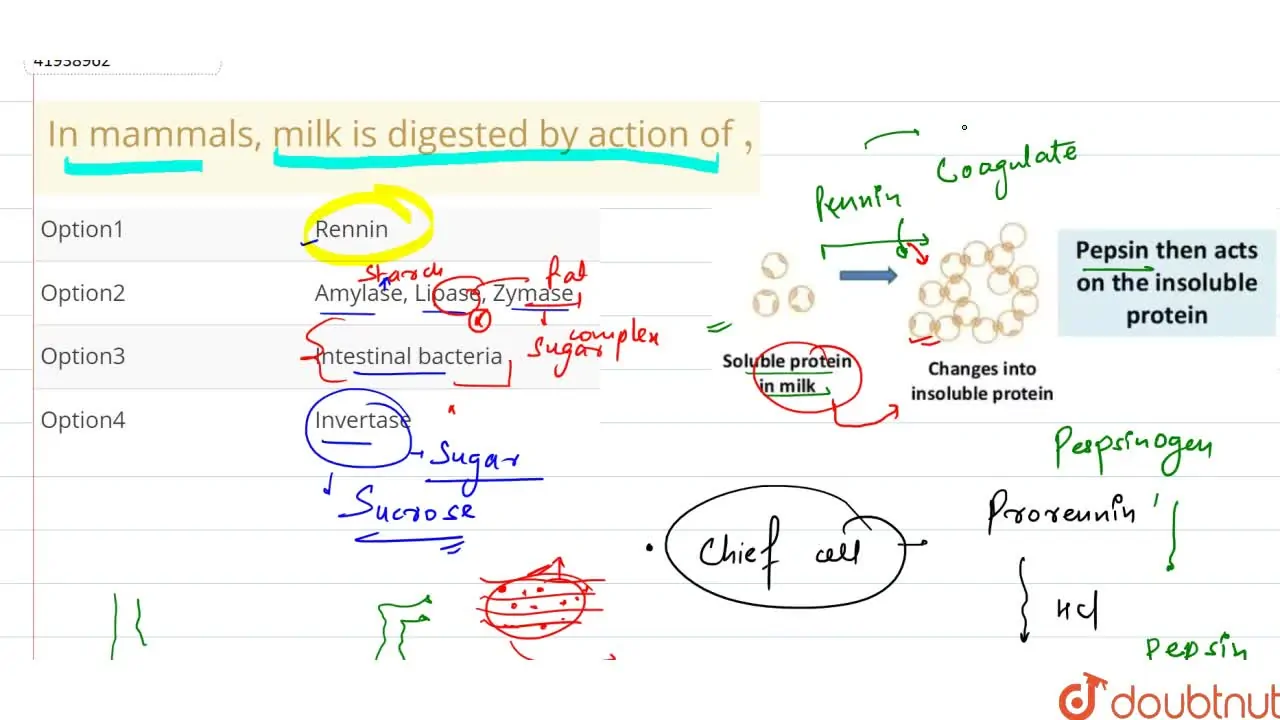 41938962
In mammals, milk is digested by action of ,
Option1 Rennin
starch fat
Option2 Amylase, Lipase, Zymase
complex
sugar
Option3 Intestinal bacteria
Option4 Invertase
Sugar
Sucrose
Coagulate
Rennin
Soluble protein
in milk
Changes into
insoluble protein
Pepsin then acts
on the insoluble
protein
Pespsinogen
Prorennin
Chief cell
HCl
pepsin
doubtnut